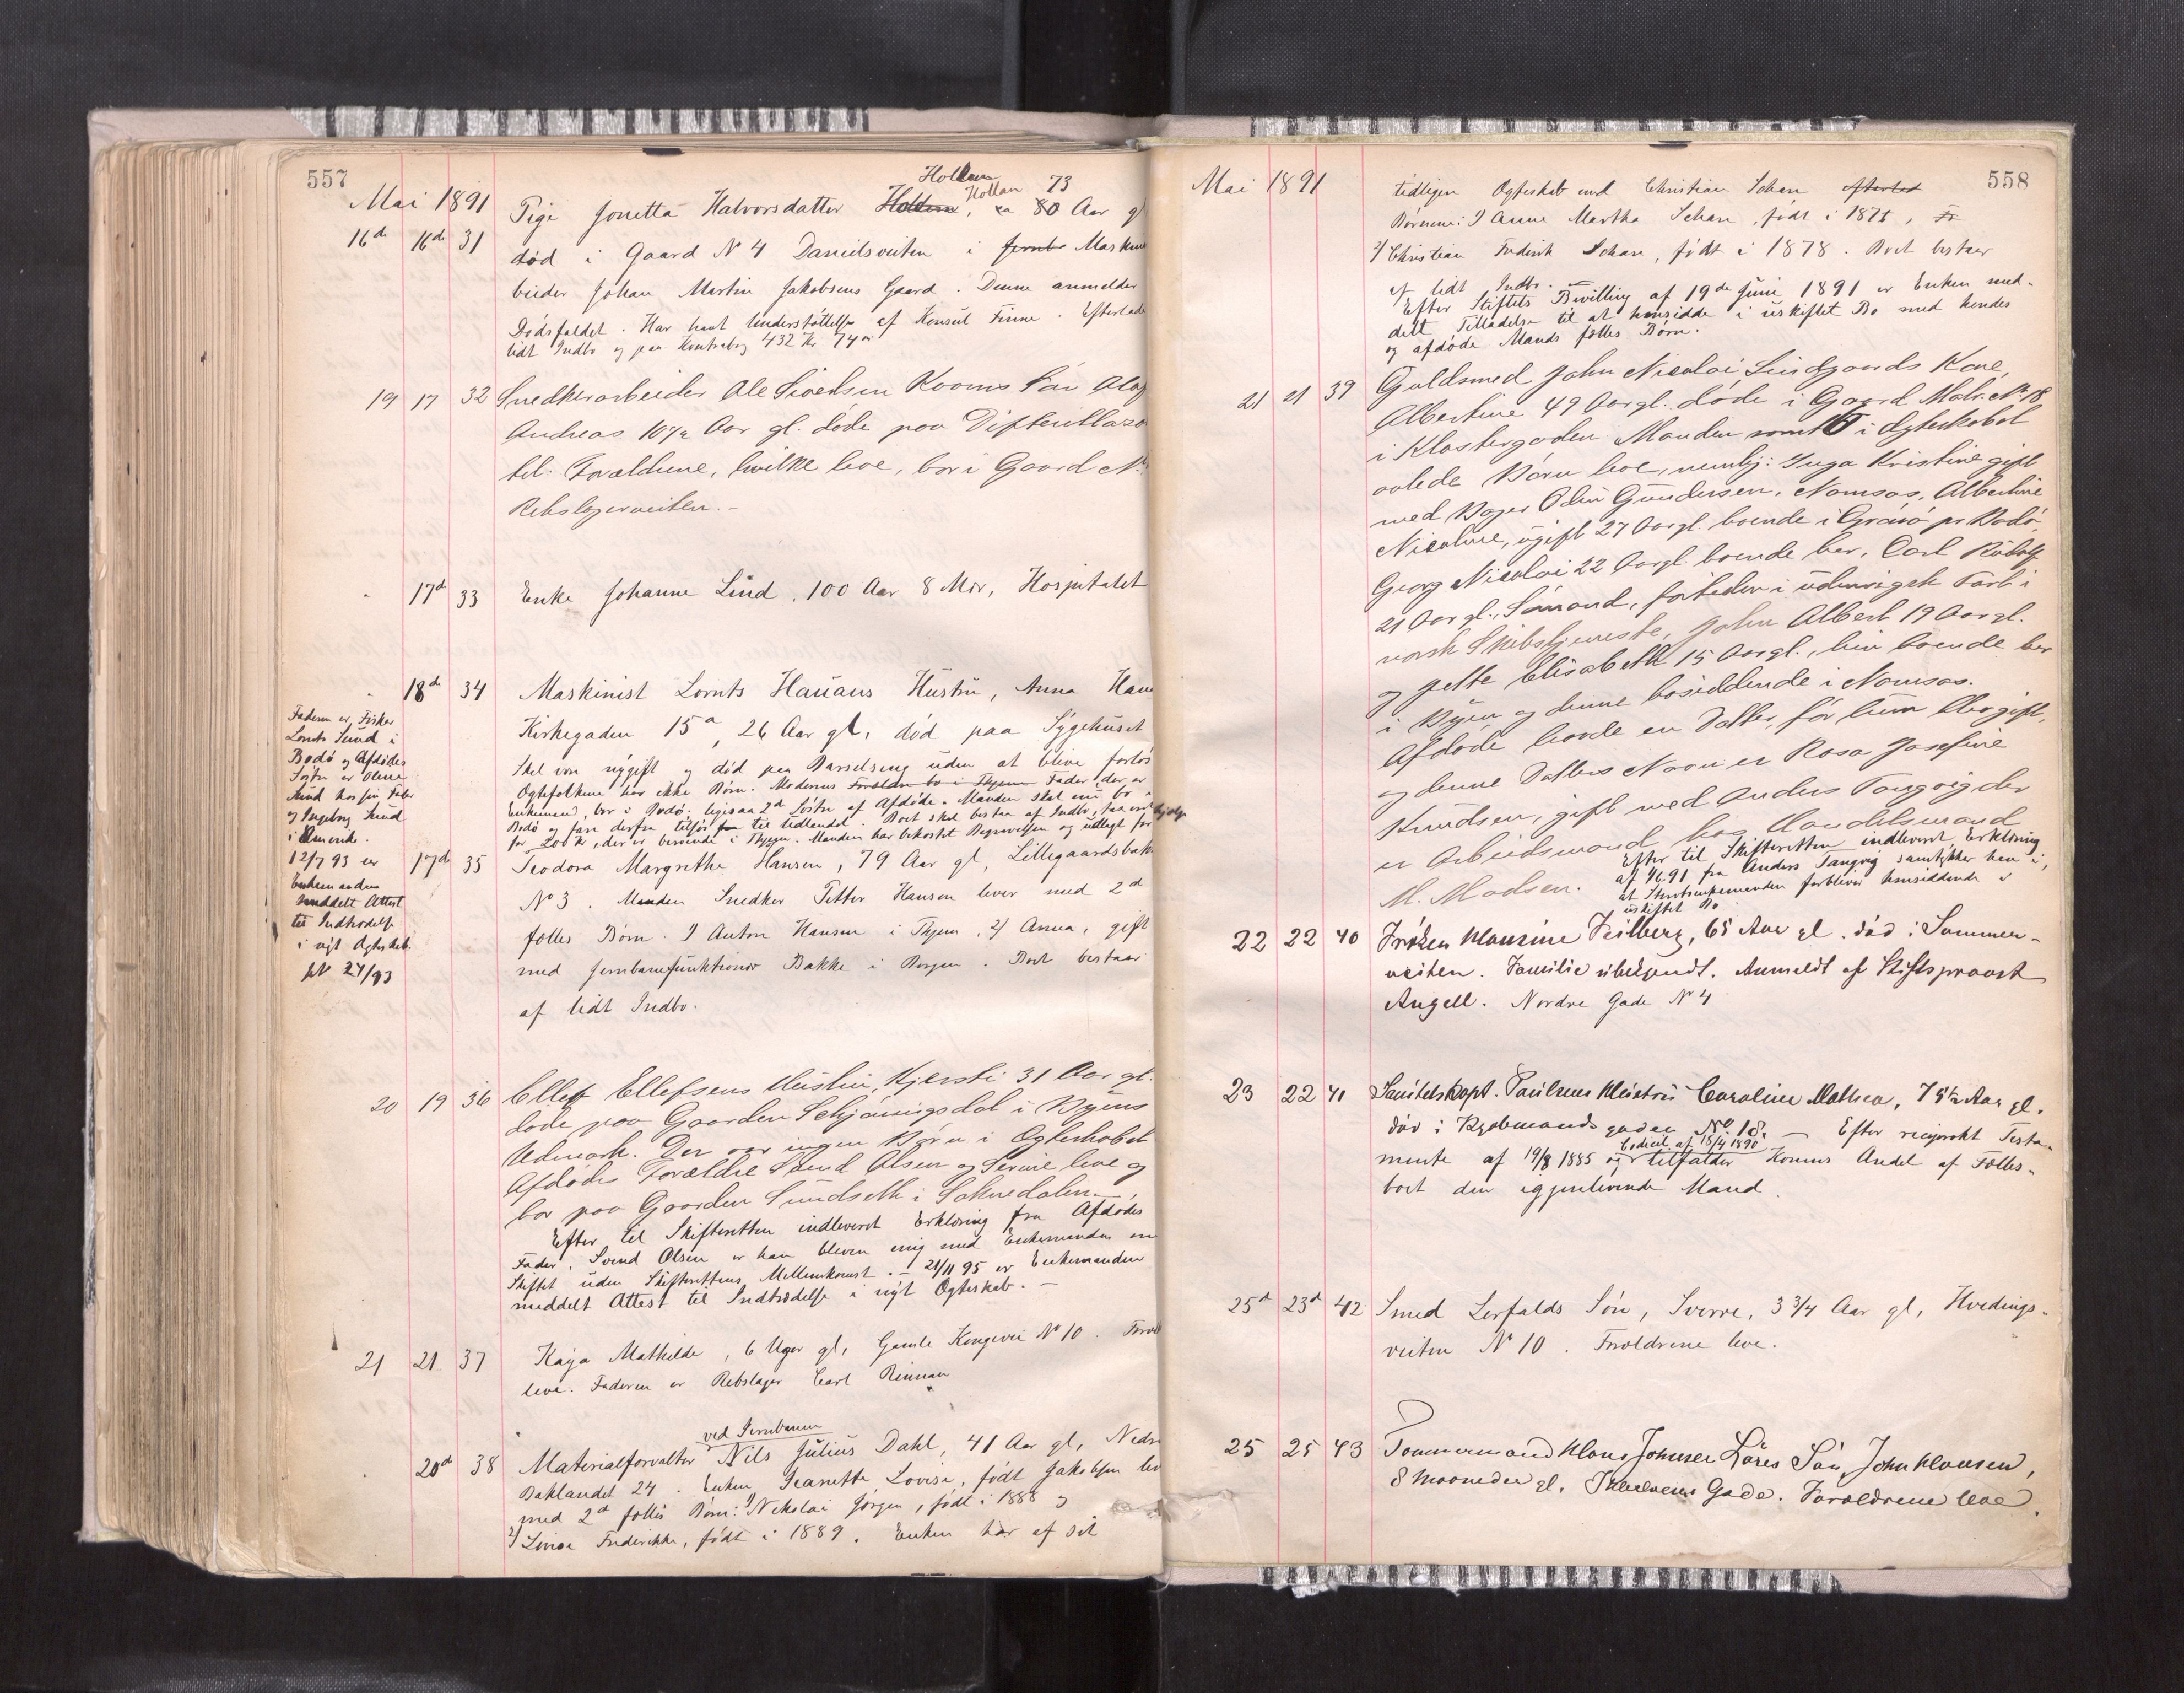 557
Mai 1891
Hollan
16de 16de 31 Pige Jonetta Halvorsdatter Holtern, Hollan ca 80 73 Aar gl
død i Gaard No 4 Danielsveiten i Jernba Maskin
beider Johan Martin Jakobsens Gaard. Denne anmelder
Dødsfaldet. Har havt Understøttelse af Konsul Finne. Efterlader
lidt Indbo og paa Kontrabog 432 Kr 74 ø
19 17 32 Snedkerarbeider Ole Sivertsen Kooms Søn Olaf
Andreas 10½ Aar gl. døde paa Difteritlaza
tel. Forældrene, hvilke leve, bor i Gaard No
Rebslagerveiten.-
17d 33 Enke Johanne Lind, 100 Aar 8 Mdr, Hospitalet
18d 34 Maskinist Lornts Hauans Hustru, Anna Hau
Kirkegaden 15a, 26 Aar gl, død paa Sygehuset
Skal være nygift og død paa Barselseng uden at blive forløs
Ægtefolkene har ikke Børn. Moderens Forældre bo i Thjem Fader der er
Enkemand, bor i Bodø, ligesaa 2d Søstre af Afdøde. Manden skal nu bo i
Bodø og fare derfra tilsjøs fra til Udlandet. Boet skal bestaa af Indbo,
for 200 Kr, der er beroende i Thjem. Manden har bekostet Begravelsen og udlagt for
Faderen er Fisker
Lornts Lund i
Bodø og Afdødes
Søstre er Oline
Lund hos sin Fader
og Ingeborg Lund
i Amerika.
12/7 93 er
Enkemanden
meddelt Attest
til Indtrædelse
i nyt Ægteskab.
No 24/93
17d 35 Teodora Margrethe Hansen, 79 Aar gl, Lillegaardsbak
No 3. Manden Snedker Petter Hansen lever med 2d
fælles Børn. 1) Anton Hansen i Thjem, 2) Anna, gift
med Jernbanefunktionær Bakke i Bergen. Boet bestaar
af lidt Indbo.
20 19 36 Ellef Ellefsens Hustru, Kjersti 31 Aar gl.
døde paa Gaarden Schjøningsdal i Byens
Udmark. Der var ingen Børn i Ægteskabet
Afdødes Forældre Svend Olsen og Serine leve og
bor paa Gaarden Sundseth i Soknedalen.-
Efter til Skifteretten indleveret Erklæring fra Afdødes
Fader, Svend Olsen er han bleven enig med Enkemanden om
Skiftet uden Skifterettens Mellemkomst. - 21/11 95 er Enkemanden
meddelt Attest til Indtrædelse i nyt Ægteskab.-
21 21 37 Kaja Mathilde, 6 Uger gl, Gamle Kongevei No 10. Foræl
leve. Faderen er Rebslager Carl Rinnan
ved Jernbanen
20d 38 Materialforvalter Nils Julius Dahl, 41 Aar gl, Nedre
Baklandet 24. Enken Jeanette Lovise, født Jakobsen lev
med 2d fælles Børn: 1) Nikolai Jørgen, født i 1888 og
2) Lina Frederikke, født i 1889. Enken har af sit
558
Mai 1891
tidligere Ægteskab med Christian Schan efterlad
Børnene: 1) Anna Martha Schan, født i 1875, Fr
2) Christian Fredrik Schan, født i 1878. Boet bestaar
af lidt Indbo.-
Efter Stiftets Bevilling af 19de Juni 1891 er Enken med-
delt Tilladelse til at hensidde i uskiftet Bo med hendes
og afdøde Mands fælles Børn.
21 21 39 Guldsmed John Nicolai Lindgaards Kone,
Albertine 49 Aar gl. døde i Gaard Matr. No 18
i Klostergaden. Manden samt 6 i Ægteskabet
avlede Børn leve, nemlig: Inga Kristine gift
med Bager Odin Gundersen, Namsos, Albertine
Nicoline, ugift 27 Aar gl. boende i Gråsø pr Bodø,
Georg Nicolai 22 Aar gl. boende her, Carl Rudolf
21 Aar gl., Sømand, fortiden i udenrigsk Fart i
norsk Skibstjeneste, John Albert 19 Aar gl.
og Jette Elisabeth 15 Aar gl., hin boende her
i Byen og denne bosiddende i Namsos.
Afdøde havde en Datter, før hun blev gift,
og denne Datters Navn er Rosa Josefine
Knudsen, gift med Anders Tangvig der
er Arbeidsmand hos Handelsmand
M. Madsen. Efter til Skifteretten indleveret Erklæring
af 4/6 91 fra Anders Tangvig samtykker han i,
at Stervboenkemanden forbliver hensiddende i
uskiftet Bo
22 22 40 Frøken Hansine Heilberg, 65 Aar gl. død i Sommer-
veiten. Familie ubekjendt. Anmeldt af Stiftsprovst
Angell. Nordre Gade No 4
23 22 41 Sanitetskapt. Paulsens Hustru Caroline Mathea, 75½ Aar gl.
død i Kjøbmandsgaden No 18. - Efter reciprokt Testa-
mente af 19/8 1885 og Codicil af 15/4 1890 tilfalder Konens Andel af Fælles-
boet den igjenlevende Mand.
25d 23d 42 Smed Lerfalds Søn, Sverre, 3 3/4 Aar gl, Hvedings-
veiten No 10. Forældrene leve.
25 25 43 Tømmermand Hans Johnsen Løres Søn, John Hansen,
8 Maaneder gl. Gade. Forældrene leve.